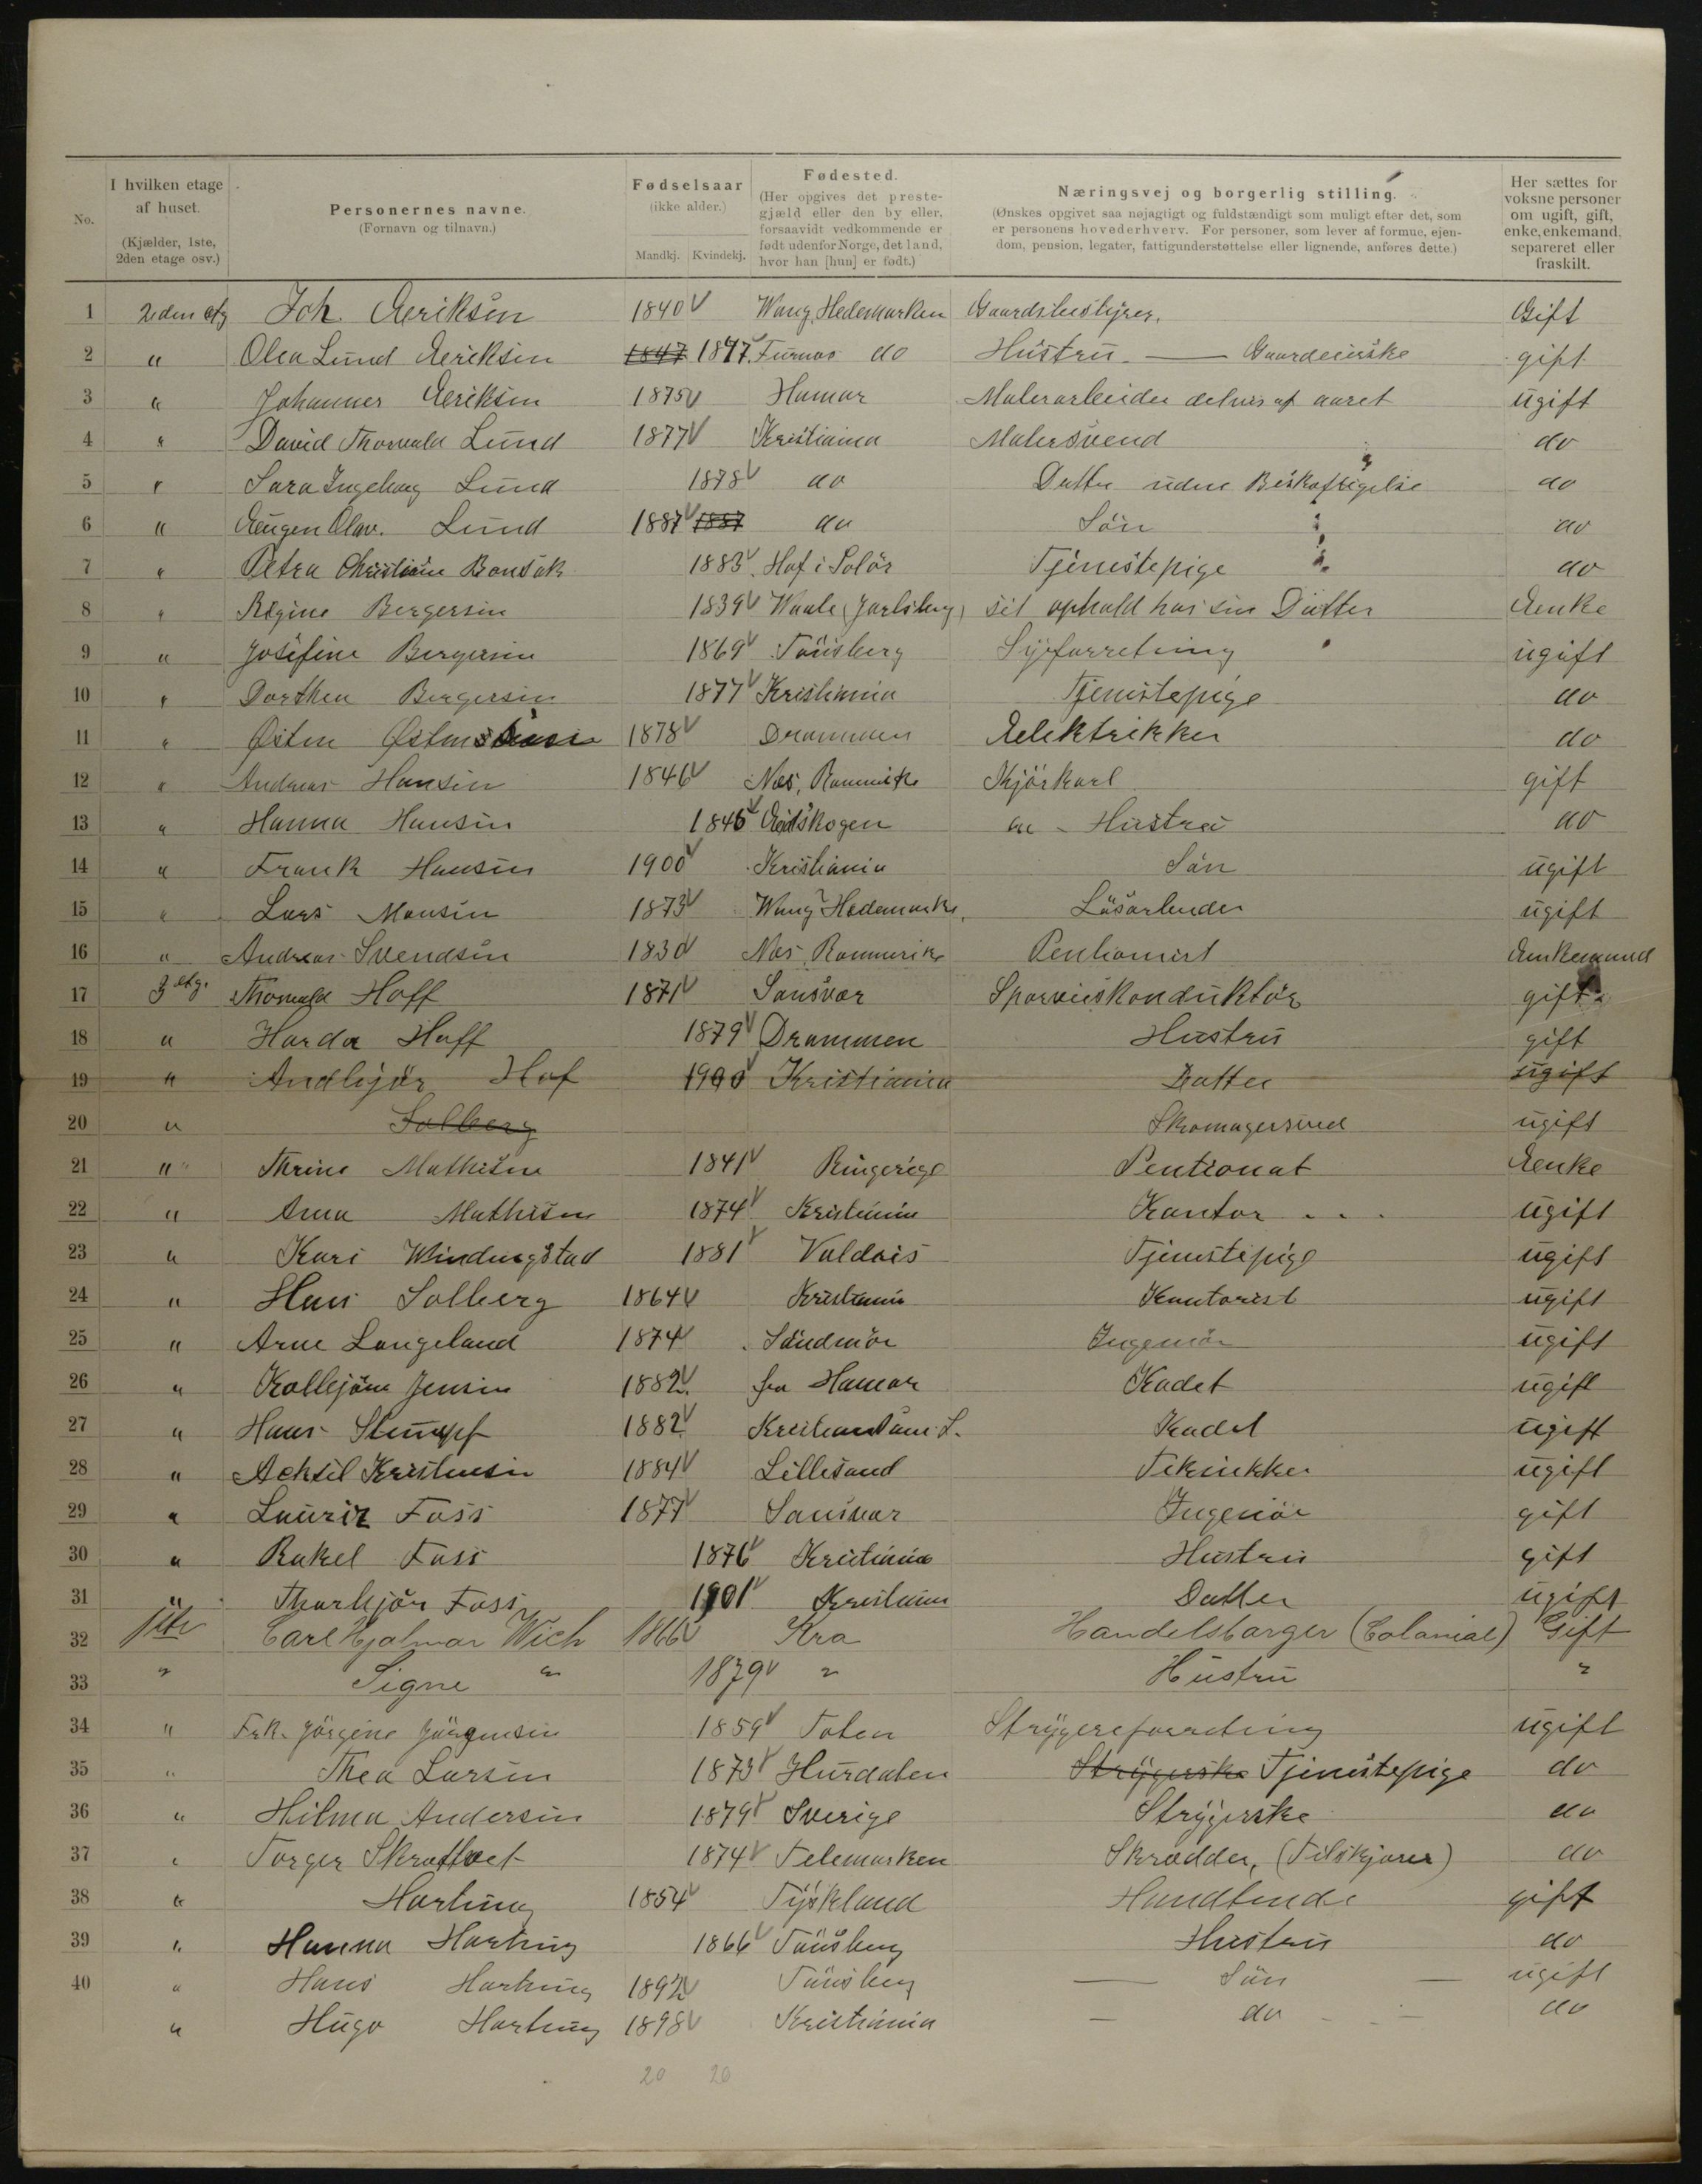 No. | I hvilken etage af huset. (Kjælder, 1ste, 2den etage osv.) | Personernes navne. (Fornavn og tilnavn.) | Fødselsaar (ikke alder.) Mandkj. Kvindekj. | Fødested. (Her opgives det prestegjæld eller den by eller, forsaavidt vedkommende er født udenfor Norge, det land, hvor han [hun] er født.) | Næringsvej og borgerlig stilling. (Ønskes opgivet saa nøjagtigt og fuldstændigt som muligt efter det, som er personens hovederhverv. For personer, som lever af formue, ejendom, pension, legater, fattigunderstøttelse eller lignende, anføres dette.) | Her sættes for voksne personer om ugift, gift, enke, enkemand, separeret eller fraskilt.
1 2den etg Joh. Aeriksen 1840 Wang, Hedemarken Gaardsbestyrer. Gift
2 " Olea Lund Aeriksen 1847 1847 Furnæs do Hustru — Gaardeierske gift
3 " Johannes Aeriksen 1875 Hamar Malerarbeider delvis af aaret ugift
4 " David Thorvald Lund 1877 Kristiania Malersvend do
5 " Sara Ingeborg Lund 1878 do Datter uden Beskæftigelse do
6 " Aeugen Olav. Lund 1887 1887 do Søn do
7 " Petra Christiane Bonsak 1883 Hof i Solør Tjenestepige do
8 " Regine Bergersen 1839 Waale (Jarlsberg) sit ophold hos sin Datter Aenke
9 " Josefine Bergersen 1869 Tønsberg Syforretning ugift
10 " Dorthea Bergersen 1877 Kristiania Tjenestepige do
11 " Østen 1878 Drammen Aelektrikker do
12 " Andreas Hansen 1846 Næs, Romerike Kjørkarl gift
13 " Hanna Hansen 1845 Aeidskogen Hustru do
14 " Frank Hansen 1900 Kristiania Søn ugift
15 " Lars Monsen 1873 Wang Hedemarken Løsarbeider ugift
16 " Andreas Svendsen 1830 Næs Romerike Pentionist Aenkemand
17 3 etg. Thorvald Hoff 1871 Sansvær Sporveiskonduktør gift
18 " Harda Hoff 1879 Drammen Hustru gift
19 " Andbjør Hof 1900 Kristiania Datter ugift
20 " Solberg Skomagersvend ugift
21 " Thrine Mathisen 1841 Ringerige Pentionat Aenke
22 " Anna Mathisen 1874 Kristiania Kontor ... ugift
23 " Kari Windingstad 1881 Valders Tjenestepige ugift
24 " Hans Solberg 1864 Kristiania Kontorist ugift
25 " Arne Langeland 1874 Søndmør Ingeniør ugift
26 " Kolbjørn Jensen 1882 fra Hamar Kadet ugift
27 " Hans Stumpf 1882 Kristiansand S. Kadet ugift
28 " Acksel Kristensen 1884 Lillesand Teknikker ugift
29 " Lauriz Foss 1877 Sansvær Ingeniør gift
30 " Rakel Foss 1876 Kristiania Hustru gift
31 " Thorbjør Foss 1901 Kristiania Datter ugift
32 1ste Carl Hjalmar Wich 1866 Kra Handelsborger (Colonial) Gift
33 " Signe " 1879 " Hustru "
34 " Frk. Jørgine Jørgensen 1859 Toten Strygereforretning ugift
35 " Thea Larsen 1873 Hurdalen Strygerske Tjenestepige do
36 " Hilma Andersen 1879 Sverige Strygerske do
37 " Torger Skraffset 1874 Telemarken Skrædder, (Tilskjærer) do
38 " Hartung 1854 Tyskland gift
39 " Hanna Hartung 1866 Tønsberg Hustru do
40 " Hans Hartung 1892 Tønsberg — Søn — ugift
" Hugo Hartung 1898 Kristiania — do — do
20 20